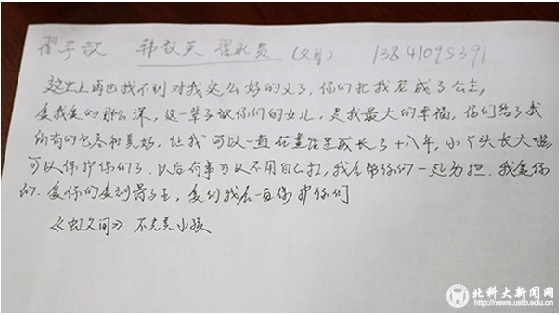 翟予歆 韩 英 翟永贵 (父母) 13841095391
这世上再也找不到对我这么好的人了,你们把我养成了公主,
爱我爱的那么深,这一辈子做你们的女儿,是我最大的幸福,你们给了我
所有的包容和美好,让我可以一直在童话里成长了十八年,小丫头长大啦
可以保护你们了,以后有事可以不用自己扛,我会帮你们一起分担。我爱你
们。爱你们爱到骨子里,爱到我会一直保护你们
《 父间》 不 小孩
北科大新闻网
http://news.ustb.edu.cn